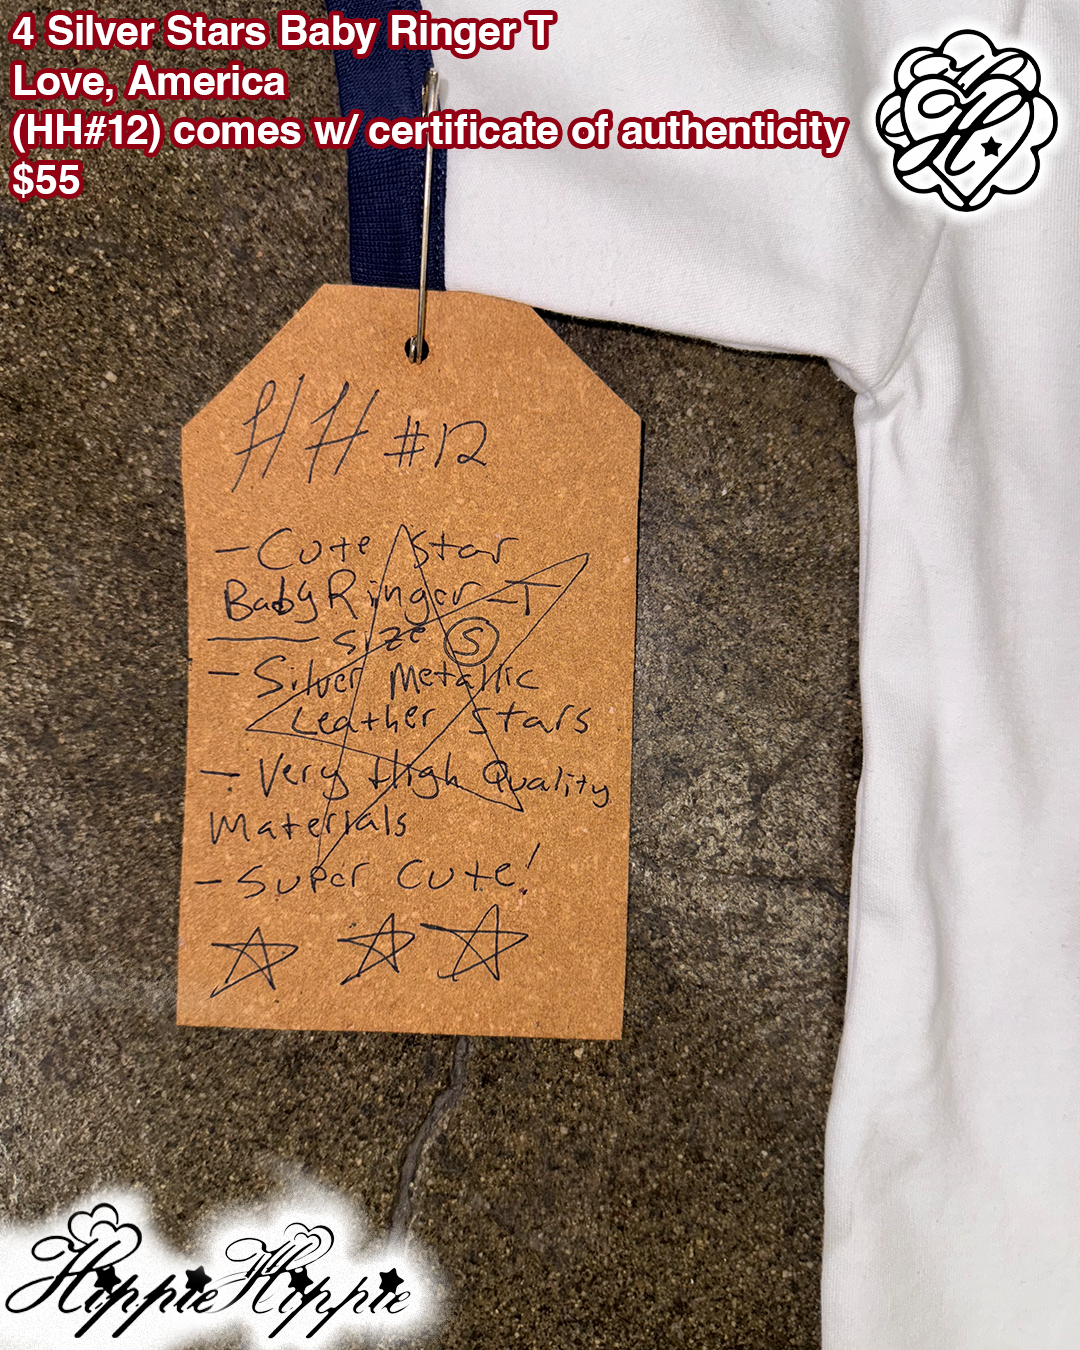 4 Silver Stars Baby Ringer T
Love, America
(HH#12) comes w/ certificate of authenticity
$55
H
HH #12
- Cute Star
Baby Ringer-T
size S
- Silver Metallic
Leather Stars
- Very High Quality
Materials
- Super Cute!
HippieHippie